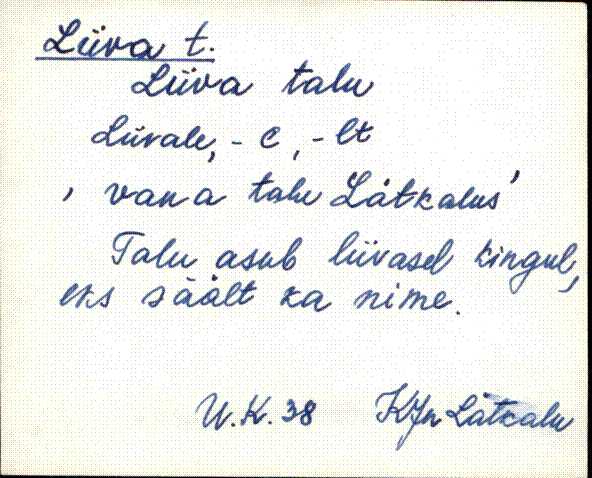 Liiva t.
Liiva talu
Liivale, - e, - lt
, vana talu Lätkalus'
Talu asub liivasel kingul,
eks säält ka nime.
U.K. 38 KJn Lätkalu